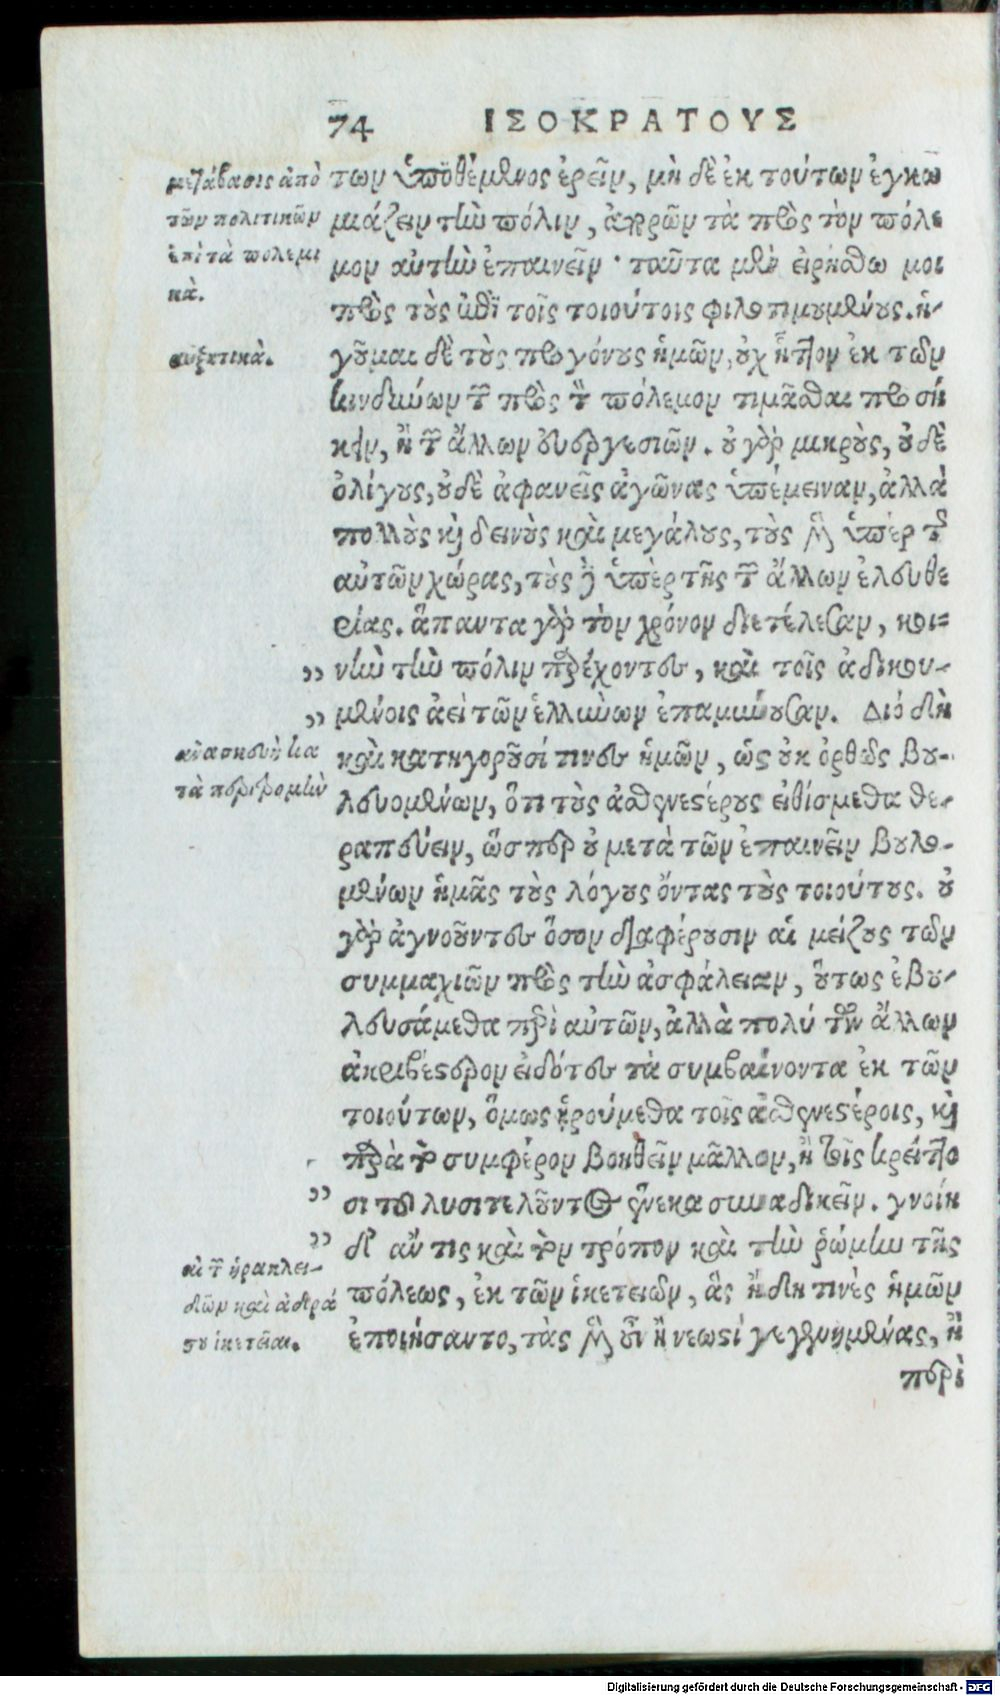 74 ΙΣΟΚΡΑΤΟΥΣ
μετάβασις ἀπὸ
τῶν πολιτικῶν
ἐπὶ τὰ πολεμι
κά.
αὐξητικά.
ἀνασκευὴ κα
τὰ περιτρομὴν
αἱ τῶν ἡρακλει-
δῶν καὶ ἀδρά
στου ἱκετεῖαι.
των ὑποθέμενος ἐρεῖν, μὴ δὲ ἐκ τούτων ἐγκω
μιάζειν τὴν πόλιν, ἀπορῶν τὰ πρὸς τὸν πόλε
μον αὐτὴν ἐπαινεῖν· ταῦτα μὲν εἰρήσθω μοι
πρὸς τοὺς ἐπὶ τοῖς τοιούτοις φιλοτιμουμένους. ἡ-
γοῦμαι δὲ τοὺς προγόνους ἡμῶν, οὐχ ἧττον ἐκ τῶν
κινδύνων τῶν πρὸς τὸν πόλεμον τιμᾶσθαι προσή
κειν, ἢ τῶν ἄλλων εὐεργεσιῶν. οὐ γὰρ μικροὺς, οὐδὲ
ὀλίγους, οὐδὲ ἀφανεῖς ἀγῶνας ὑπέμειναν, ἀλλὰ
πολλοὺς καὶ δεινοὺς καὶ μεγάλους, τοὺς μὲν ὑπὲρ τῆς
αὐτῶν χώρας, τοὺς δὲ ὑπὲρ τῆς τῶν ἄλλων ἐλευθε
ρίας. ἅπαντα γὰρ τὸν χρόνον διετέλεσαν, κοι-
” νὴν τὴν πόλιν παρέχοντες, καὶ τοῖς ἀδικου-
” μένοις ἀεὶ τῶν ἑλλήνων ἐπαμύνουσαν. Διὸ δὴ
καὶ κατηγοροῦσί τινες ἡμῶν, ὡς οὐκ ὀρθῶς βου-
λευομένων, ὅτι τοὺς ἀσθενεστέρους εἰθίσμεθα θε-
ραπεύειν, ὥσπερ οὐ μετὰ τῶν ἐπαινεῖν βουλο-
μένων ἡμᾶς τοὺς λόγους ὄντας τοὺς τοιούτους. οὐ
γὰρ ἀγνοοῦντες ὅσον διαφέρουσιν αἱ μείζους τῶν
συμμαχιῶν πρὸς τὴν ἀσφάλειαν, οὕτως ἐβου-
λευσάμεθα περὶ αὐτῶν, ἀλλὰ πολὺ τῶν ἄλλων
ἀκριβέστερον εἰδότες τὰ συμβαίνοντα ἐκ τῶν
τοιούτων, ὅμως ᾑρούμεθα τοῖς ἀσθενεστέροις, καὶ
παρὰ τὸ συμφέρον βοηθεῖν μᾶλλον, ἢ τοῖς κρείττο
” σι τοῦ λυσιτελοῦντος ἕνεκα συναδικεῖν. γνοίη
” δ’ ἄν τις καὶ τὸν τρόπον καὶ τὴν ῥώμην τῆς
πόλεως, ἐκ τῶν ἱκετειῶν, ἃς ἤδη τινὲς ἡμῶν
ἐποιήσαντο, τὰς μὲν οὖν ἢ νεωστὶ γεγενημένας, ἢ
περὶ
Digitalisierung gefördert durch die Deutsche Forschungsgemeinschaft - DFG